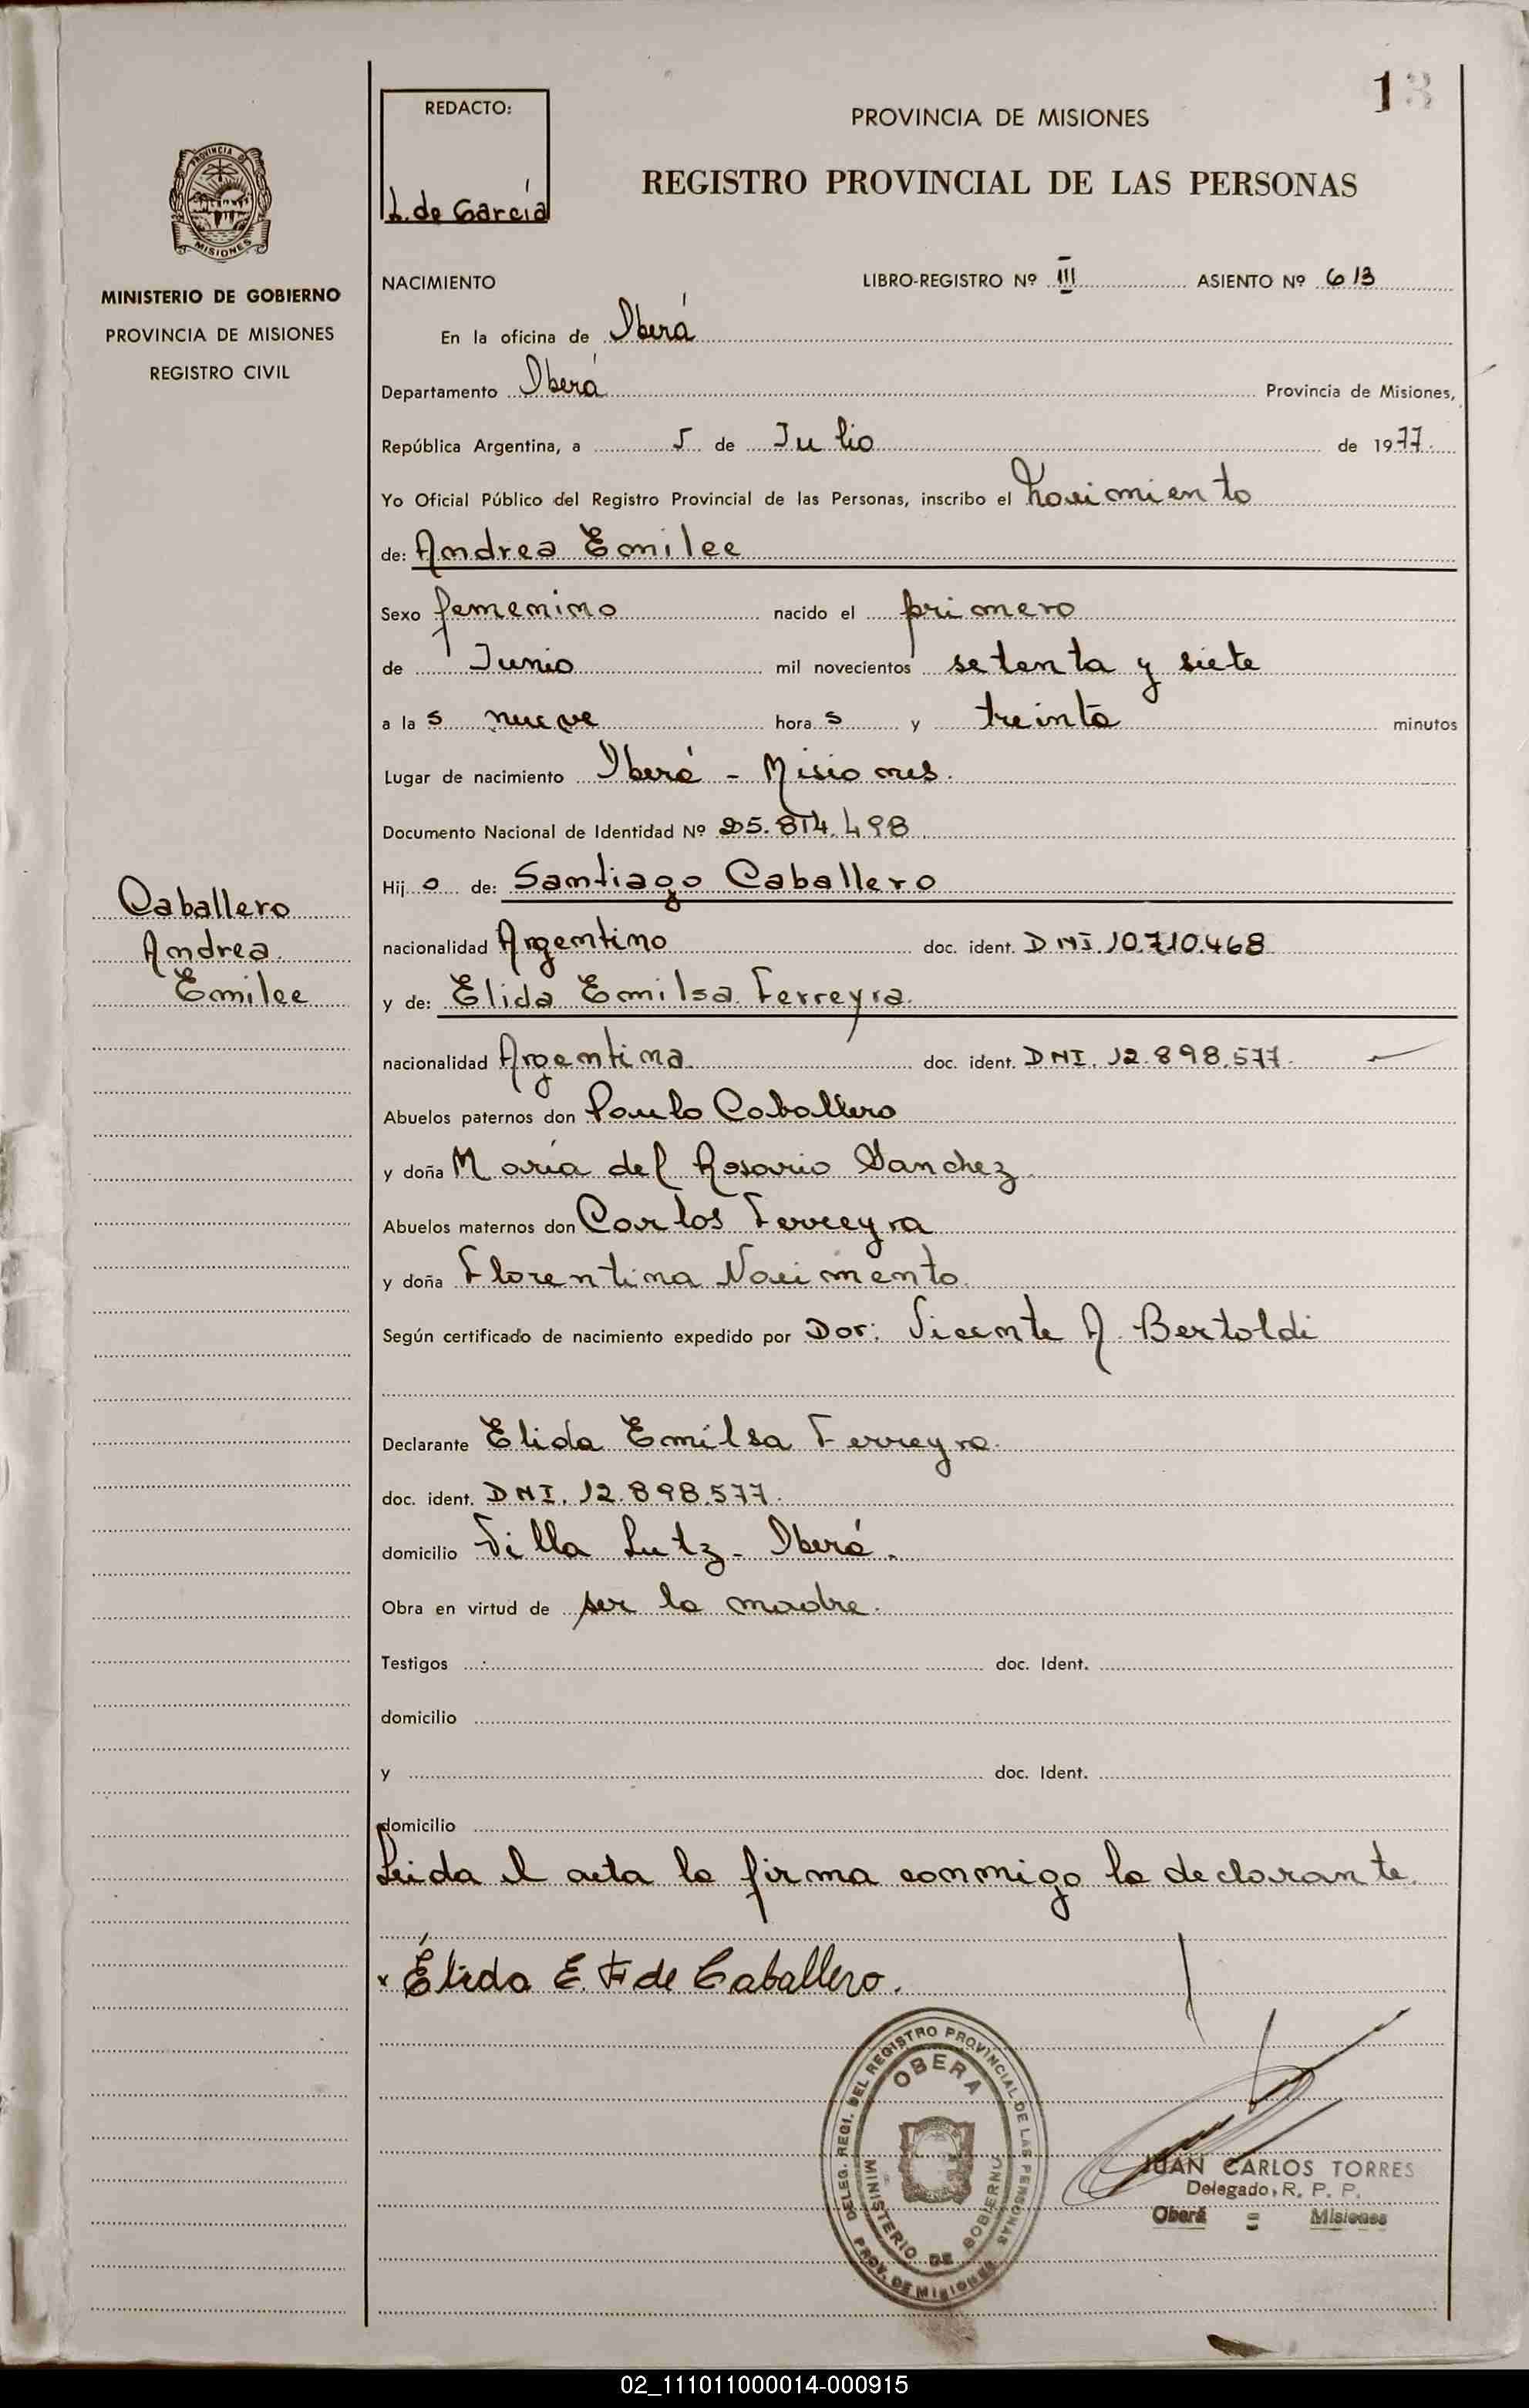 13
REDACTO:
L. de García
PROVINCIA DE MISIONES
REGISTRO PROVINCIAL DE LAS PERSONAS
PROVINCIA DE
MISIONES
MINISTERIO DE GOBIERNO
PROVINCIA DE MISIONES
REGISTRO CIVIL
NACIMIENTO LIBRO-REGISTRO Nº III ASIENTO Nº 613
En la oficina de Oberá
Departamento Oberá Provincia de Misiones,
República Argentina, a 5 de Julio de 1977.
Yo Oficial Público del Registro Provincial de las Personas, inscribo el nacimiento
de: Andrea Emilce
Sexo femenino nacido el primero
de Junio mil novecientos setenta y siete
a las nueve horas y treinta minutos
Lugar de nacimiento Oberá - Misiones.
Documento Nacional de Identidad Nº 25.814.498
Hijo de: Santiago Caballero
Caballero
Andrea
Emilce
nacionalidad Argentino doc. ident. DNI. 10.710.468
y de: Elida Emilsa Ferreyra.
nacionalidad Argentina doc. ident. DNI. 12.898.577.
Abuelos paternos don Paulo Caballero
y doña María del Rosario Sanchez
Abuelos maternos don Carlos Ferreyra
y doña Florentina Nacimento.
Según certificado de nacimiento expedido por Dor: Vicente A. Bertoldi
Declarante Elida Emilsa Ferreyra.
doc. ident. DNI. 12.898.577.
domicilio Villa Lutz - Oberá.
Obra en virtud de ser la madre.
Testigos doc. Ident.
domicilio
y doc. Ident.
domicilio
Leida el acta la firma conmigo la declarante.
x Élida E. F. de Caballero.
DELEG. REGI. DEL REGISTRO PROVINCIAL DE LAS PERSONAS
OBERA
MINISTERIO DE GOBIERNO
PROV. DE MISIONES
JUAN CARLOS TORRES
Delegado, R. P. P.
Oberá = Misiones
02_111011000014-000915